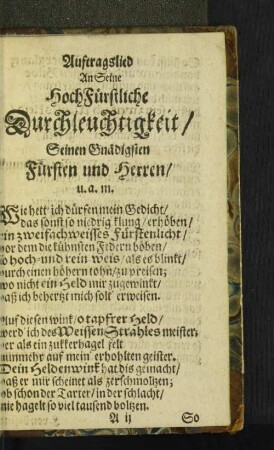 Auftragslied
An Seine
HochFürstliche
Durchleuchtigkeit/
Seinen Gnädigsten
Fürsten und Herren/
u. a. m.
Wie hett ich dürfen mein Gedicht/
das sonst so niedrig klung/ erhöben/
in zweifachweisses Fürstenlicht/
vor dem die kühnsten Federn böben/
so hoch- und rein weis/ als es blinkt/
durch einen höhern tohn/ zu preisen;
wo nicht ein Held mir zugewinkt/
daß ich behertzt mich solt' erweisen.
Auf diesen wink/ o tapfrer Held/
werd ich des Weissen Strahles meister.
er als ein zukkerhagel felt
nunmehr auf mein' erhohlten geister.
Dein Heldenwink hat dis gemacht/
daß er mir scheinet als zerschmoltzen;
ob schon der Tarter/ in der schlacht/
nie hagelt so viel tausend boltzen.
A ij
So